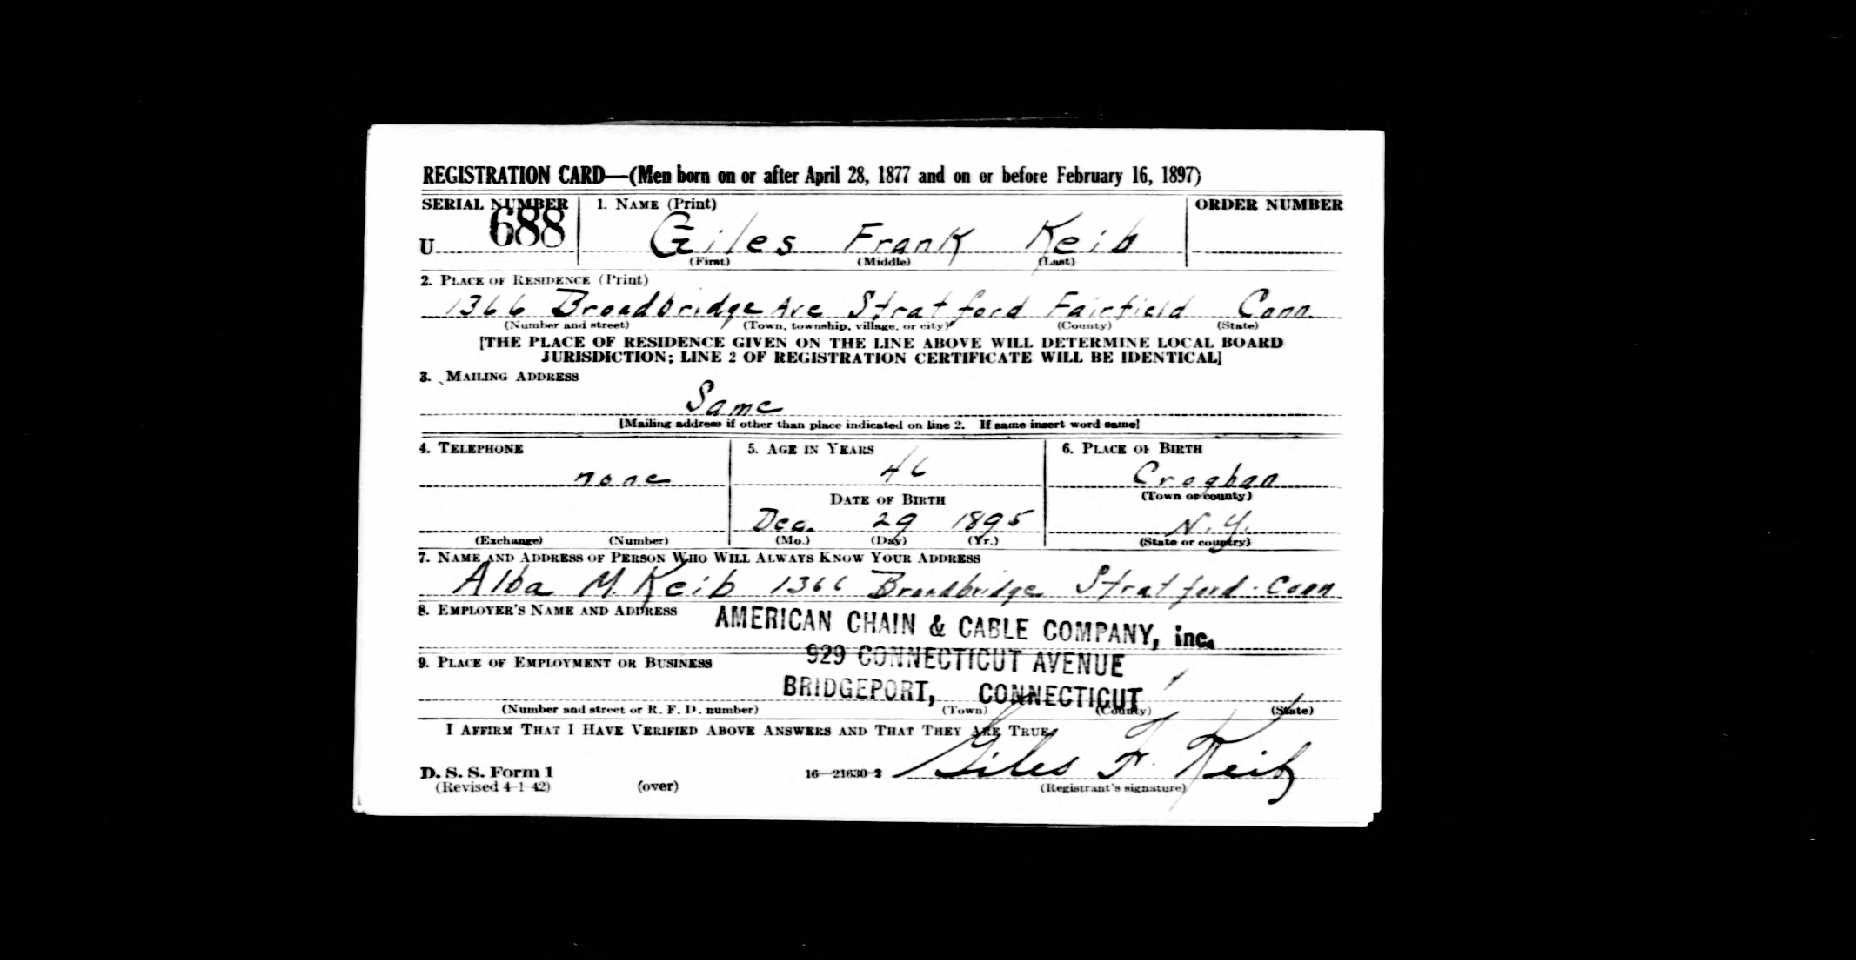 REGISTRATION CARD—(Men born on or after April 28, 1877 and on or before February 16, 1897)
SERIAL NUMBER 1. NAME (Print) ORDER NUMBER
U 688 Giles Frank Keib
(First) (Middle) (Last)
2. PLACE OF RESIDENCE (Print)
1366 Broadbridge Ave Stratford Fairfield Conn
(Number and street) (Town, township, village, or city) (County) (State)
[THE PLACE OF RESIDENCE GIVEN ON THE LINE ABOVE WILL DETERMINE LOCAL BOARD
JURISDICTION; LINE 2 OF REGISTRATION CERTIFICATE WILL BE IDENTICAL]
3. MAILING ADDRESS
Same
[Mailing address if other than place indicated on line 2. If same insert word same]
4. TELEPHONE 5. AGE IN YEARS 6. PLACE OF BIRTH
none 46 Croghan
DATE OF BIRTH (Town or county)
Dec. 29 1895 N.Y.
(Exchange) (Number) (Mo.) (Day) (Yr.) (State or country)
7. NAME AND ADDRESS OF PERSON WHO WILL ALWAYS KNOW YOUR ADDRESS
Alba M. Keib 1366 Broadbridge Stratford. Conn
8. EMPLOYER'S NAME AND ADDRESS
AMERICAN CHAIN & CABLE COMPANY, inc.
929 CONNECTICUT AVENUE
9. PLACE OF EMPLOYMENT OR BUSINESS
BRIDGEPORT, CONNECTICUT
(Number and street or R. F. D. number) (Town) (County) (State)
I AFFIRM THAT I HAVE VERIFIED ABOVE ANSWERS AND THAT THEY ARE TRUE.
D. S. S. Form 1 16—21630-2 Giles F. Keib
(Revised 4-1-42) (over) (Registrant's signature)